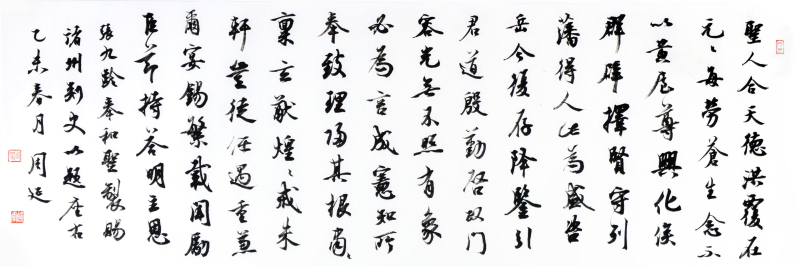 聖人合天德洪覆在
元々每勞蒼生念不
以黃屋尊興化俟
群辟擇賢守列
藩得人此為盛咨
岳今復存降鑒引
君道殷勤啟政門
容光無不照有象
必為言成憲知所
奉致理歸其根肅々
稟玄猷煌々戒朱
軒豈徒任遇重兼
爾宴錫繁載聞勵
臣節持答明主恩
張九齡奉和聖製賜
諸州刺史以題座右
乙未春月周